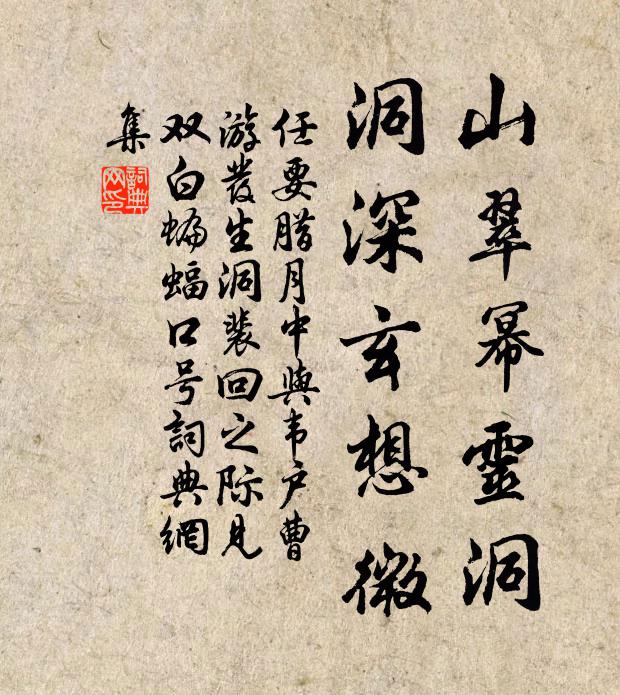 山翠幂靈洞
洞深玄想微
任要腊月中與韦户曹
游發生洞裴回之际見
双白蝙蝠口号詞典網
集
詞典
网印